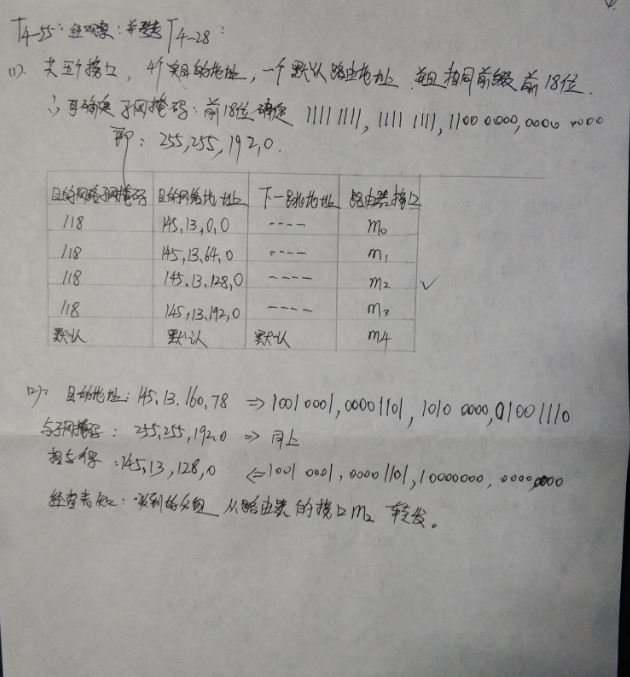 T4-55: 经观察: 并读 T4-28:
(1). 共五个接口, 4个实目的地址, 一个默认路由地址 并且相同前缀前18位.
∴可确定子网掩码: 前18位确定 1111 1111, 1111 1111, 1100 0000, 0000 0000
即: 255,255,192,0.
目的网络子网掩码 目的网络地址 下一跳地址 路由器接口
/18 145,13,0,0 ---- m0
/18 145,13,64,0 ---- m1
/18 145.13.128,0 ---- m2 ✓
/18 145,13,192,0 ---- m3
默认 默认 默认 m4
(2): 目的地址: 145.13.160,78 ⇒ 1001 0001, 0000 1101, 1010 0000, 0100 1110
与子网掩码: 255,255,192,0 ⇒ 同上
相与得: 145,13,128,0 ⇐ 1001 0001, 0000 1101, 10000000, 0000,0000
经查表知: 收到的分组 从路由器的接口 m2 转发。